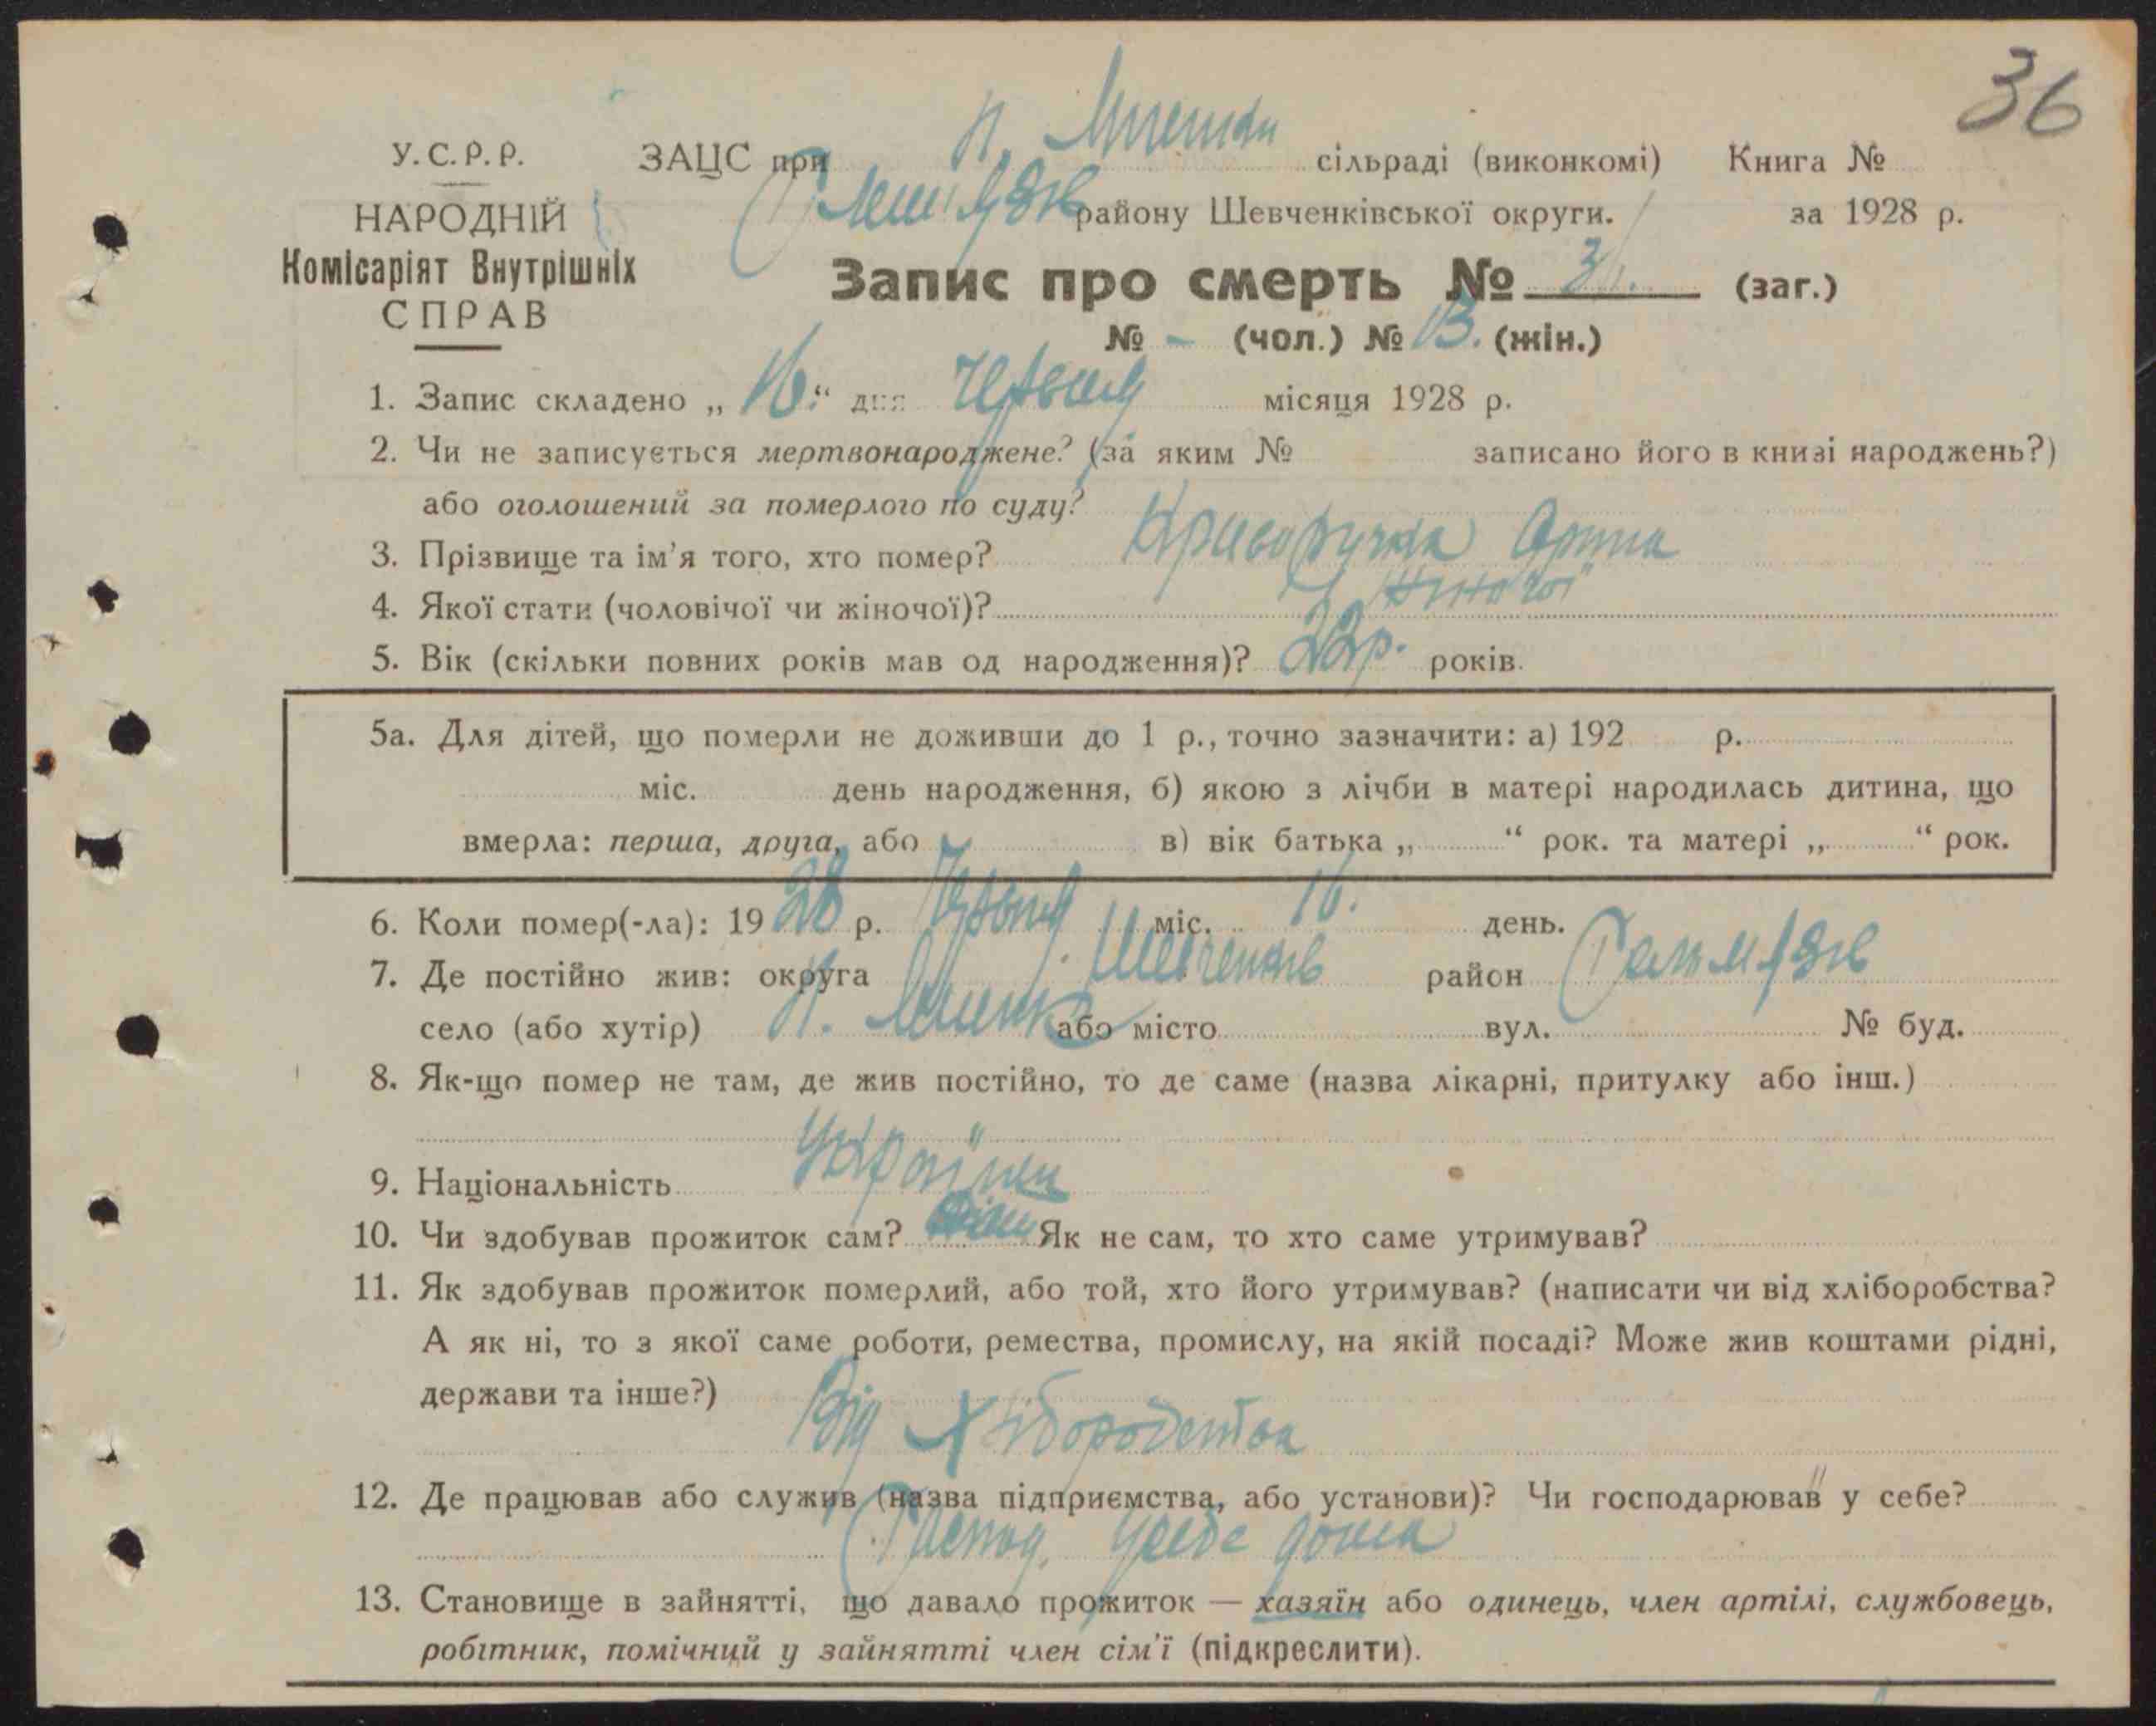 36
У.С.Р.Р. ЗАЦС при сільраді (виконкомі) Книга №
НАРОДНІЙ району Шевченківської округи. за 1928 р.
Комісаріят Внутрішніх
СПРАВ
Запис про смерть № (заг.)
№ - (чол.) № 13. (жін.)
1. Запис складено „16.“ дня Червня місяця 1928 р.
2. Чи не записується мертвонароджене? (за яким № записано його в книзі народжень?)
або оголошений за померлого по суду?
3. Прізвище та ім'я того, хто помер? Криворучка
4. Якої стати (чоловічої чи жіночої)? Жіночої
5. Вік (скільки повних років мав од народження)? 22р. років.
5а. Для дітей, що померли не доживши до 1 р., точно зазначити: а) 192 р.
міс. день народження, б) якою з лічби в матері народилась дитина, що
вмерла: перша, друга, або в) вік батька „ “ рок. та матері „ “ рок.
6. Коли помер(-ла): 1928 р. Червня міс. 16. день.
7. Де постійно жив: округа Шевченків район Гельмязів
село (або хутір) або місто вул. № буд.
8. Як-що помер не там, де жив постійно, то де саме (назва лікарні, притулку або інш.)
9. Національність Українка
10. Чи здобував прожиток сам? Як не сам, то хто саме утримував?
11. Як здобував прожиток померлий, або той, хто його утримував? (написати чи від хліборобства?
А як ні, то з якої саме роботи, ремества, промислу, на якій посаді? Може жив коштами рідні,
держави та інше?)
Від Хліборобства
12. Де працював або служив (назва підприємства, або установи)? Чи господарював у себе?
Господ. усебе дома
13. Становище в зайнятті, що давало прожиток — хазяїн або одинець, член артілі, службовець,
робітник, помічний у зайнятті член сім'ї (підкреслити).